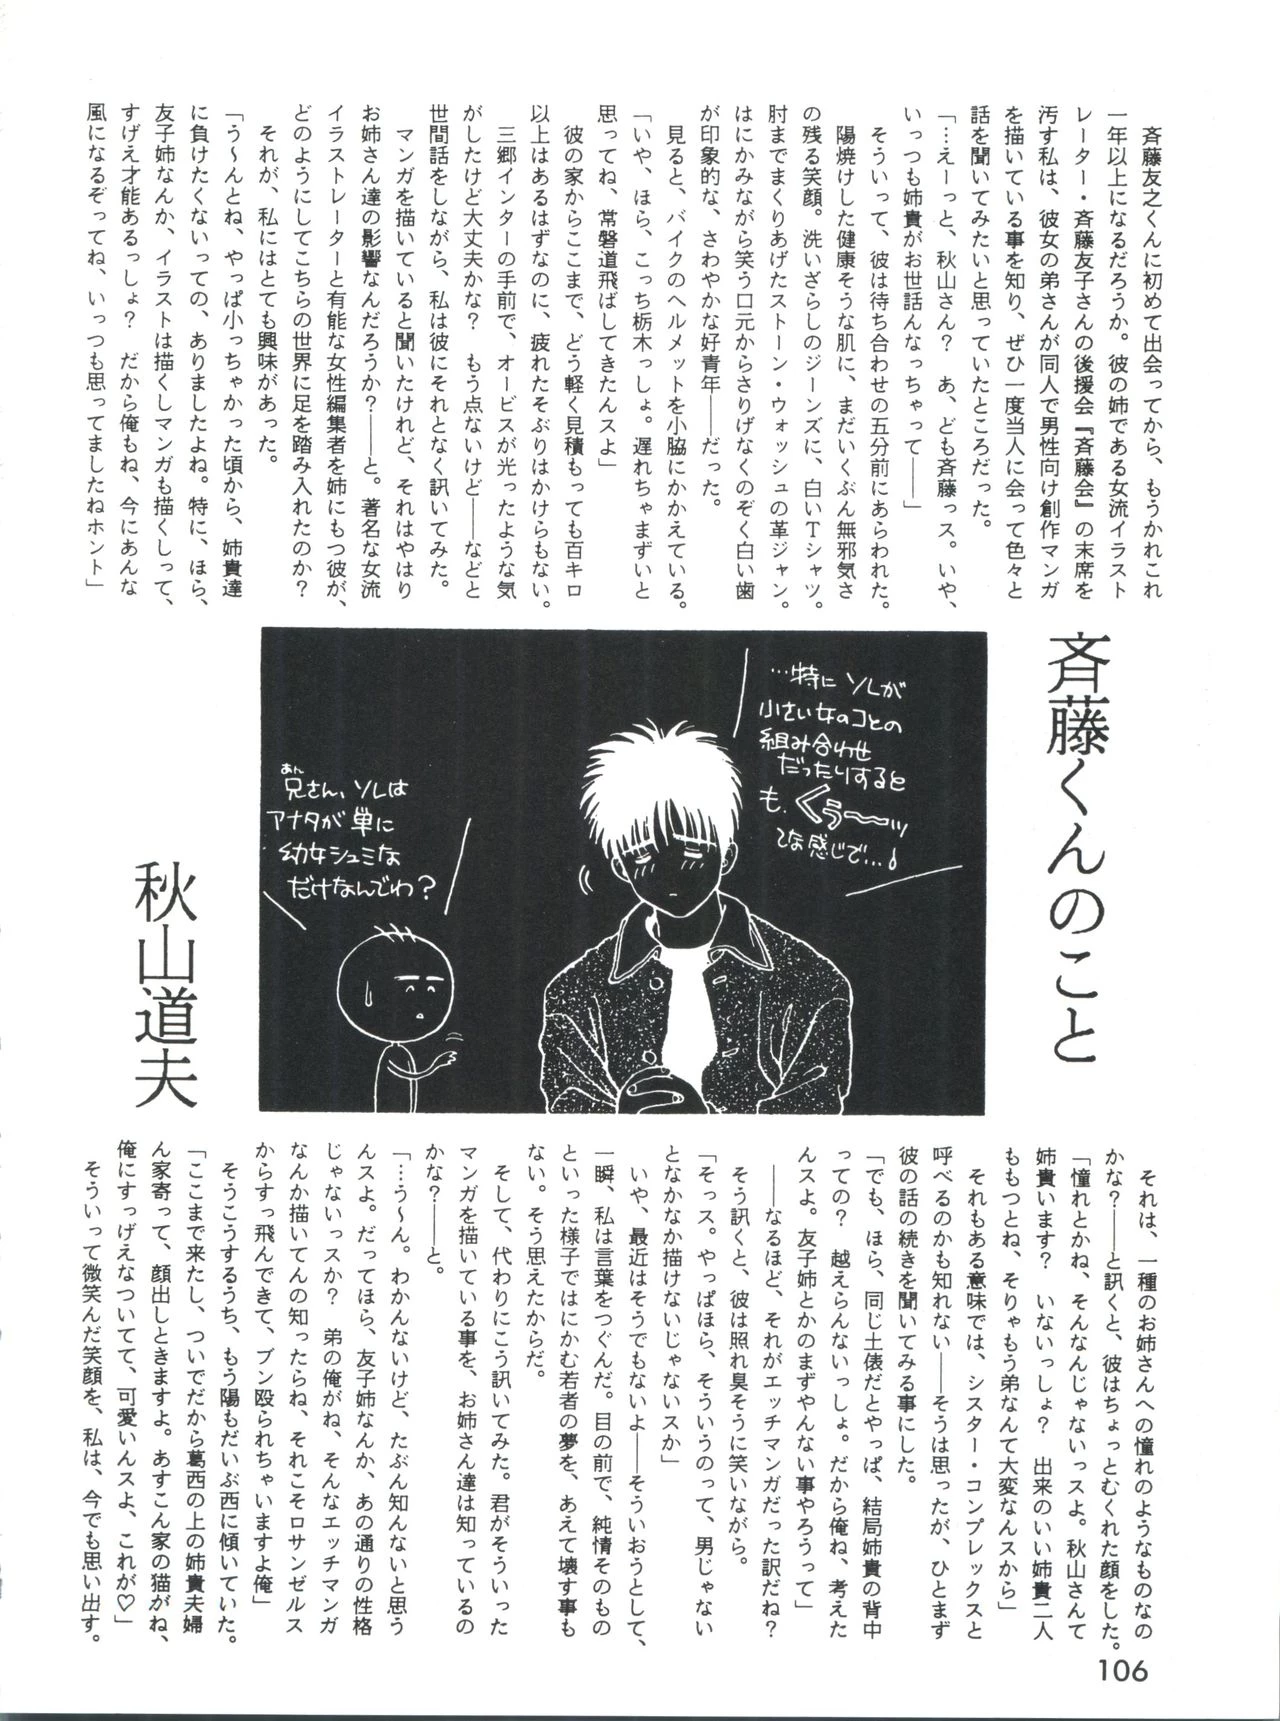 斉藤くんのこと
秋山道夫
　斉藤友之くんに初めて出会ってから、もうかれこれ
一年以上になるだろうか。彼の姉である女流イラスト
レーター・斉藤友子さんの後援会『斉藤会』の末席を
汚す私は、彼女の弟さんが同人で男性向け創作マンガ
を描いている事を知り、ぜひ一度当人に会って色々と
話を聞いてみたいと思っていたところだった。
「…えーっと、秋山さん？　あ、ども斉藤っス。いや、
いっつも姉貴がお世話んなっちゃって――」
　そういって、彼は待ち合わせの五分前にあらわれた。
　陽焼けした健康そうな肌に、まだいくぶん無邪気さ
の残る笑顔。洗いざらしのジーンズに、白いＴシャツ。
肘までまくりあげたストーン・ウォッシュの革ジャン。
はにかみながら笑う口元からさりげなくのぞく白い歯
が印象的な、さわやかな好青年――だった。
　見ると、バイクのヘルメットを小脇にかかえている。
「いや、ほら、こっち栃木っしょ。遅れちゃまずいと
思ってね、常磐道飛ばしてきたんスよ」
　彼の家からここまで、どう軽く見積もっても百キロ
以上はあるはずなのに、疲れたそぶりはかけらもない。
　三郷インターの手前で、オービスが光ったような気
がしたけど大丈夫かな？　もう点ないけど――などと
世間話をしながら、私は彼にそれとなく訊いてみた。
　マンガを描いていると聞いたけれど、それはやはり
お姉さん達の影響なんだろうか？――と。著名な女流
イラストレーターと有能な女性編集者を姉にもつ彼が、
どのようにしてこちらの世界に足を踏み入れたのか？
　それが、私にはとても興味があった。
「う～んとね、やっぱ小っちゃかった頃から、姉貴達
に負けたくないっての、ありましたよね。特に、ほら、
友子姉なんか、イラストは描くしマンガも描くしって、
すげえ才能あるっしょ？　だから俺もね、今にあんな
風になるぞってね、いっつも思ってましたねホント」
…特にソレが
小さい女のコとの
組み合わせ
だったりすると
も、くぅ～～ッ
てな感じで…！
あん
兄さん、ソレは
アナタが単に
幼女シュミな
だけなんでわ？
　それは、一種のお姉さんへの憧れのようなものなの
かな？――と訊くと、彼はちょっとむくれた顔をした。
「憧れとかね、そんなんじゃないっスよ。秋山さんて
姉貴います？　いないっしょ？　出来のいい姉貴二人
ももつとね、そりゃもう弟なんて大変なんスから」
　それもある意味では、シスター・コンプレックスと
呼べるのかも知れない――そうは思ったが、ひとまず
彼の話の続きを聞いてみる事にした。
「でも、ほら、同じ土俵だとやっぱ、結局姉貴の背中
っての？　越えらんないっしょ。だから俺ね、考えた
んスよ。友子姉とかのまずやんない事やろうって」
――なるほど、それがエッチマンガだった訳だね？
　そう訊くと、彼は照れ臭そうに笑いながら。
「そっス。やっぱほら、そういうのって、男じゃない
となかなか描けないじゃないスか」
　いや、最近はそうでもないよ――そういおうとして、
一瞬、私は言葉をつぐんだ。目の前で、純情そのもの
といった様子ではにかむ若者の夢を、あえて壊す事も
ない。そう思えたからだ。
　そして、代わりにこう訊いてみた。君がそういった
マンガを描いている事を、お姉さん達は知っているの
かな？――と。
「…う～ん。わかんないけど、たぶん知んないと思う
んスよ。だってほら、友子姉なんか、あの通りの性格
じゃないっスか？　弟の俺がね、そんなエッチマンガ
なんか描いてんの知ったらね、それこそロサンゼルス
からすっ飛んできて、ブン殴られちゃいますよ俺」
　そうこうするうち、もう陽もだいぶ西に傾いていた。
「ここまで来たし、ついでだから葛西の上の姉貴夫婦
ん家寄って、顔出しときますよ。あすこん家の猫がね、
俺にすっげえなついてて、可愛いんスよ、これが♡」
　そういって微笑んだ笑顔を、私は、今でも思い出す。
106